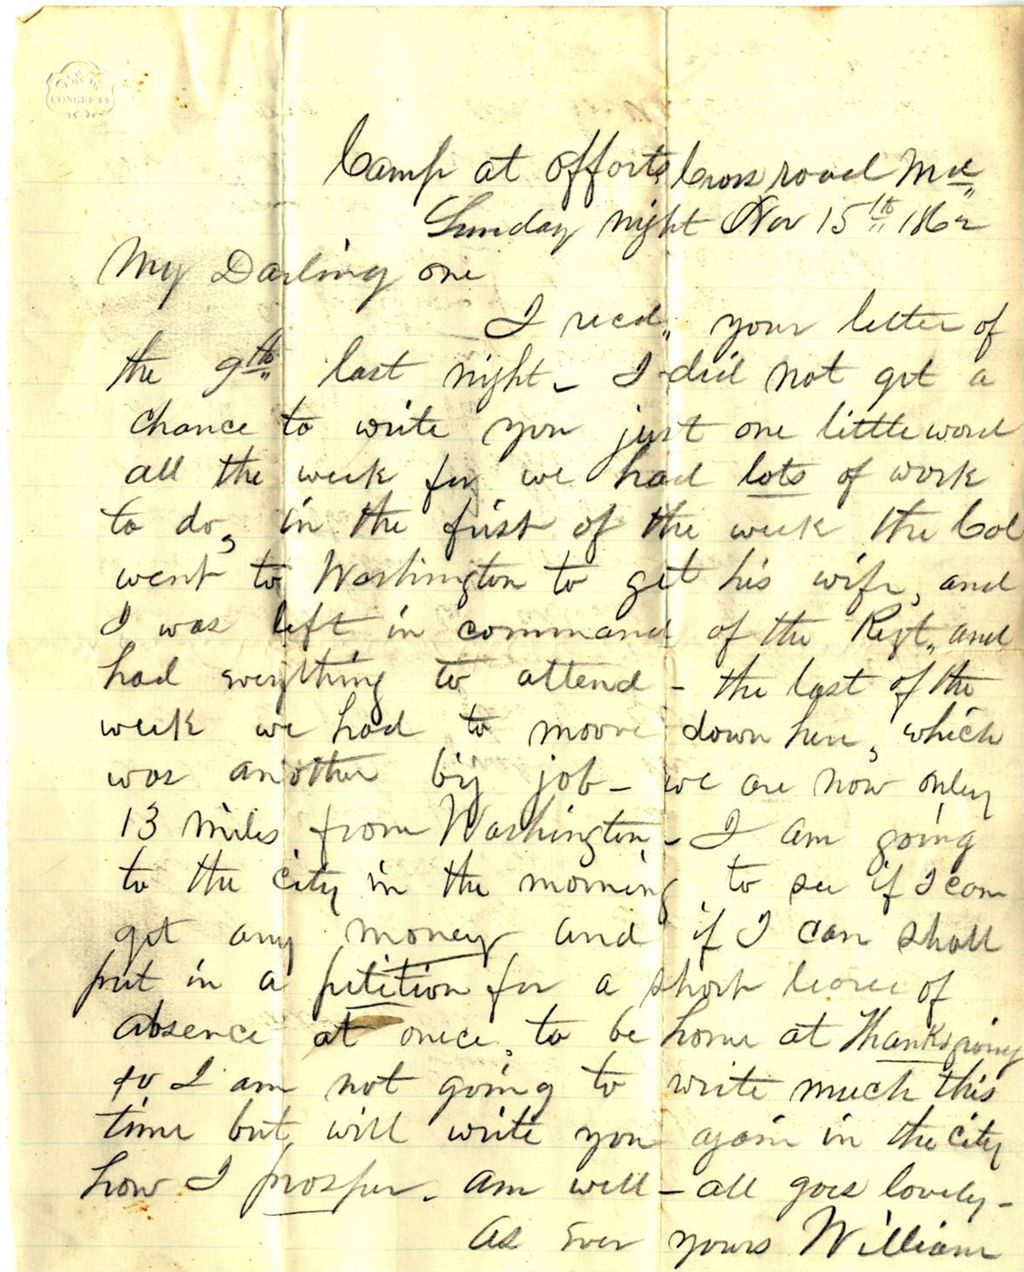 CONGRESS
Camp at Offorts Cross road Md
Sunday night Nov 15th 1862
My Darling one
I recd, your letter of
the 9th last night – I did not get a
chance to write you just one little word
all the week for we had lots of work
to do, in the first of the week the Col
went to Washington to get his wife, and
I was left in command of the Regt, and
had everything to attend – the last of the
week we had to moove down here, which
was another big job – we are now only
13 miles from Washington – I am going
to the city in the morning to see if I can
get any money and if I can shall
put in a petition for a short leave of
absence at onece, to be home at Thanksgiving
so I am not going to write much this
time but, will write you again in the city
how I prosper. am well – all goes lovely –
As ever yours William